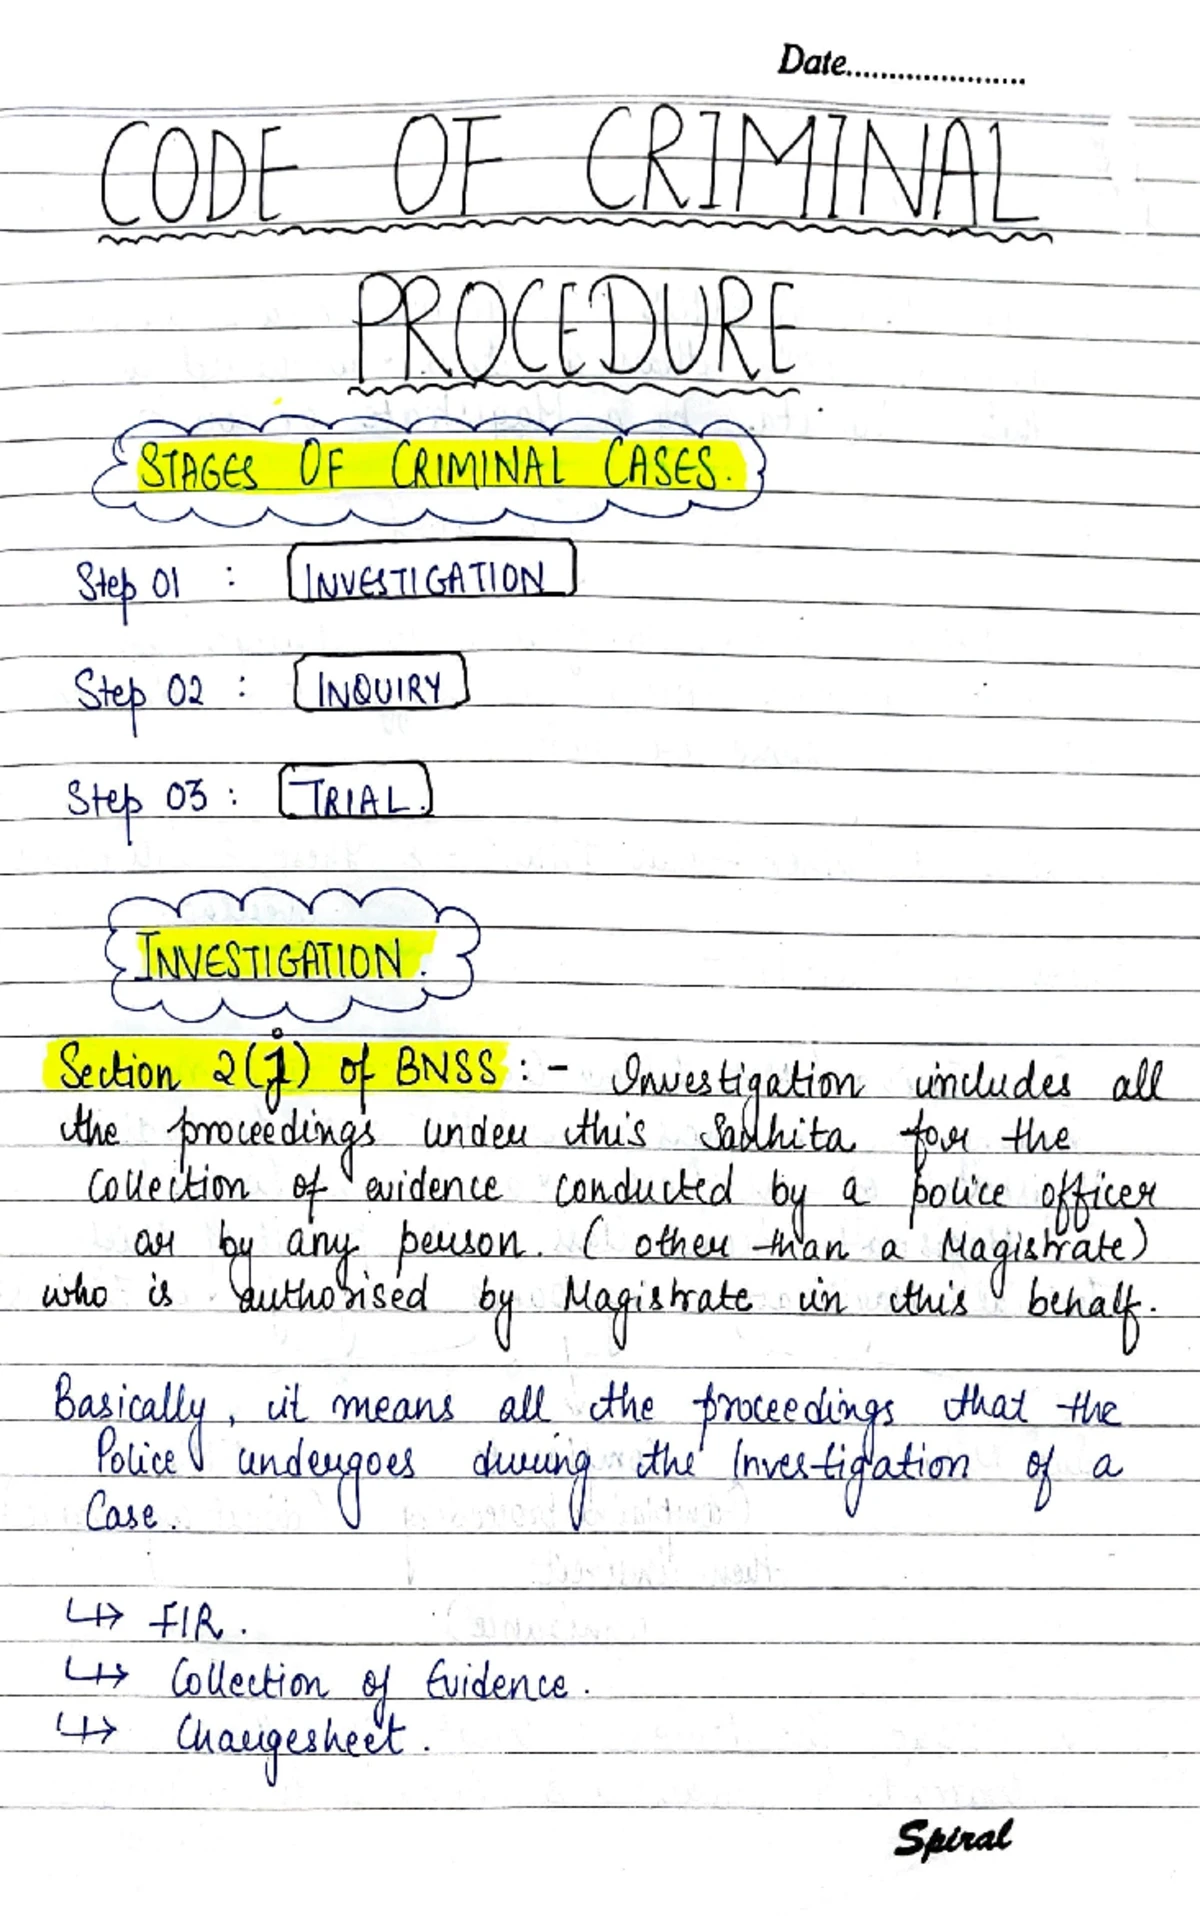 Date.....................
CODE OF CRIMINAL
PROCEDURE
STAGES OF CRIMINAL CASES.
Step 01 : INVESTIGATION
Step 02 : INQUIRY
Step 03 : TRIAL.
INVESTIGATION.
Section 2(j) of BNSS :- Investigation includes all
the proceedings under this Sanhita for the
Collection of evidence conducted by a police officer
or by any person. (other than a Magistrate)
who is authorised by Magistrate in this behalf.
Basically, it means all the proceedings that the
Police undergoes during the Investigation of a
Case.
↳ FIR.
↳ Collection of Evidence.
↳ Chargesheet.
Spiral